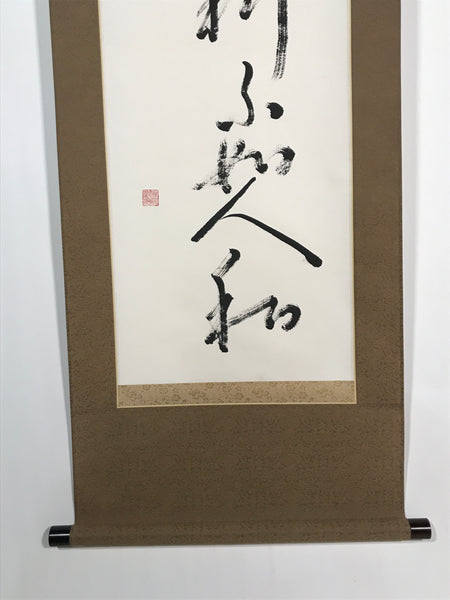 利不如人和